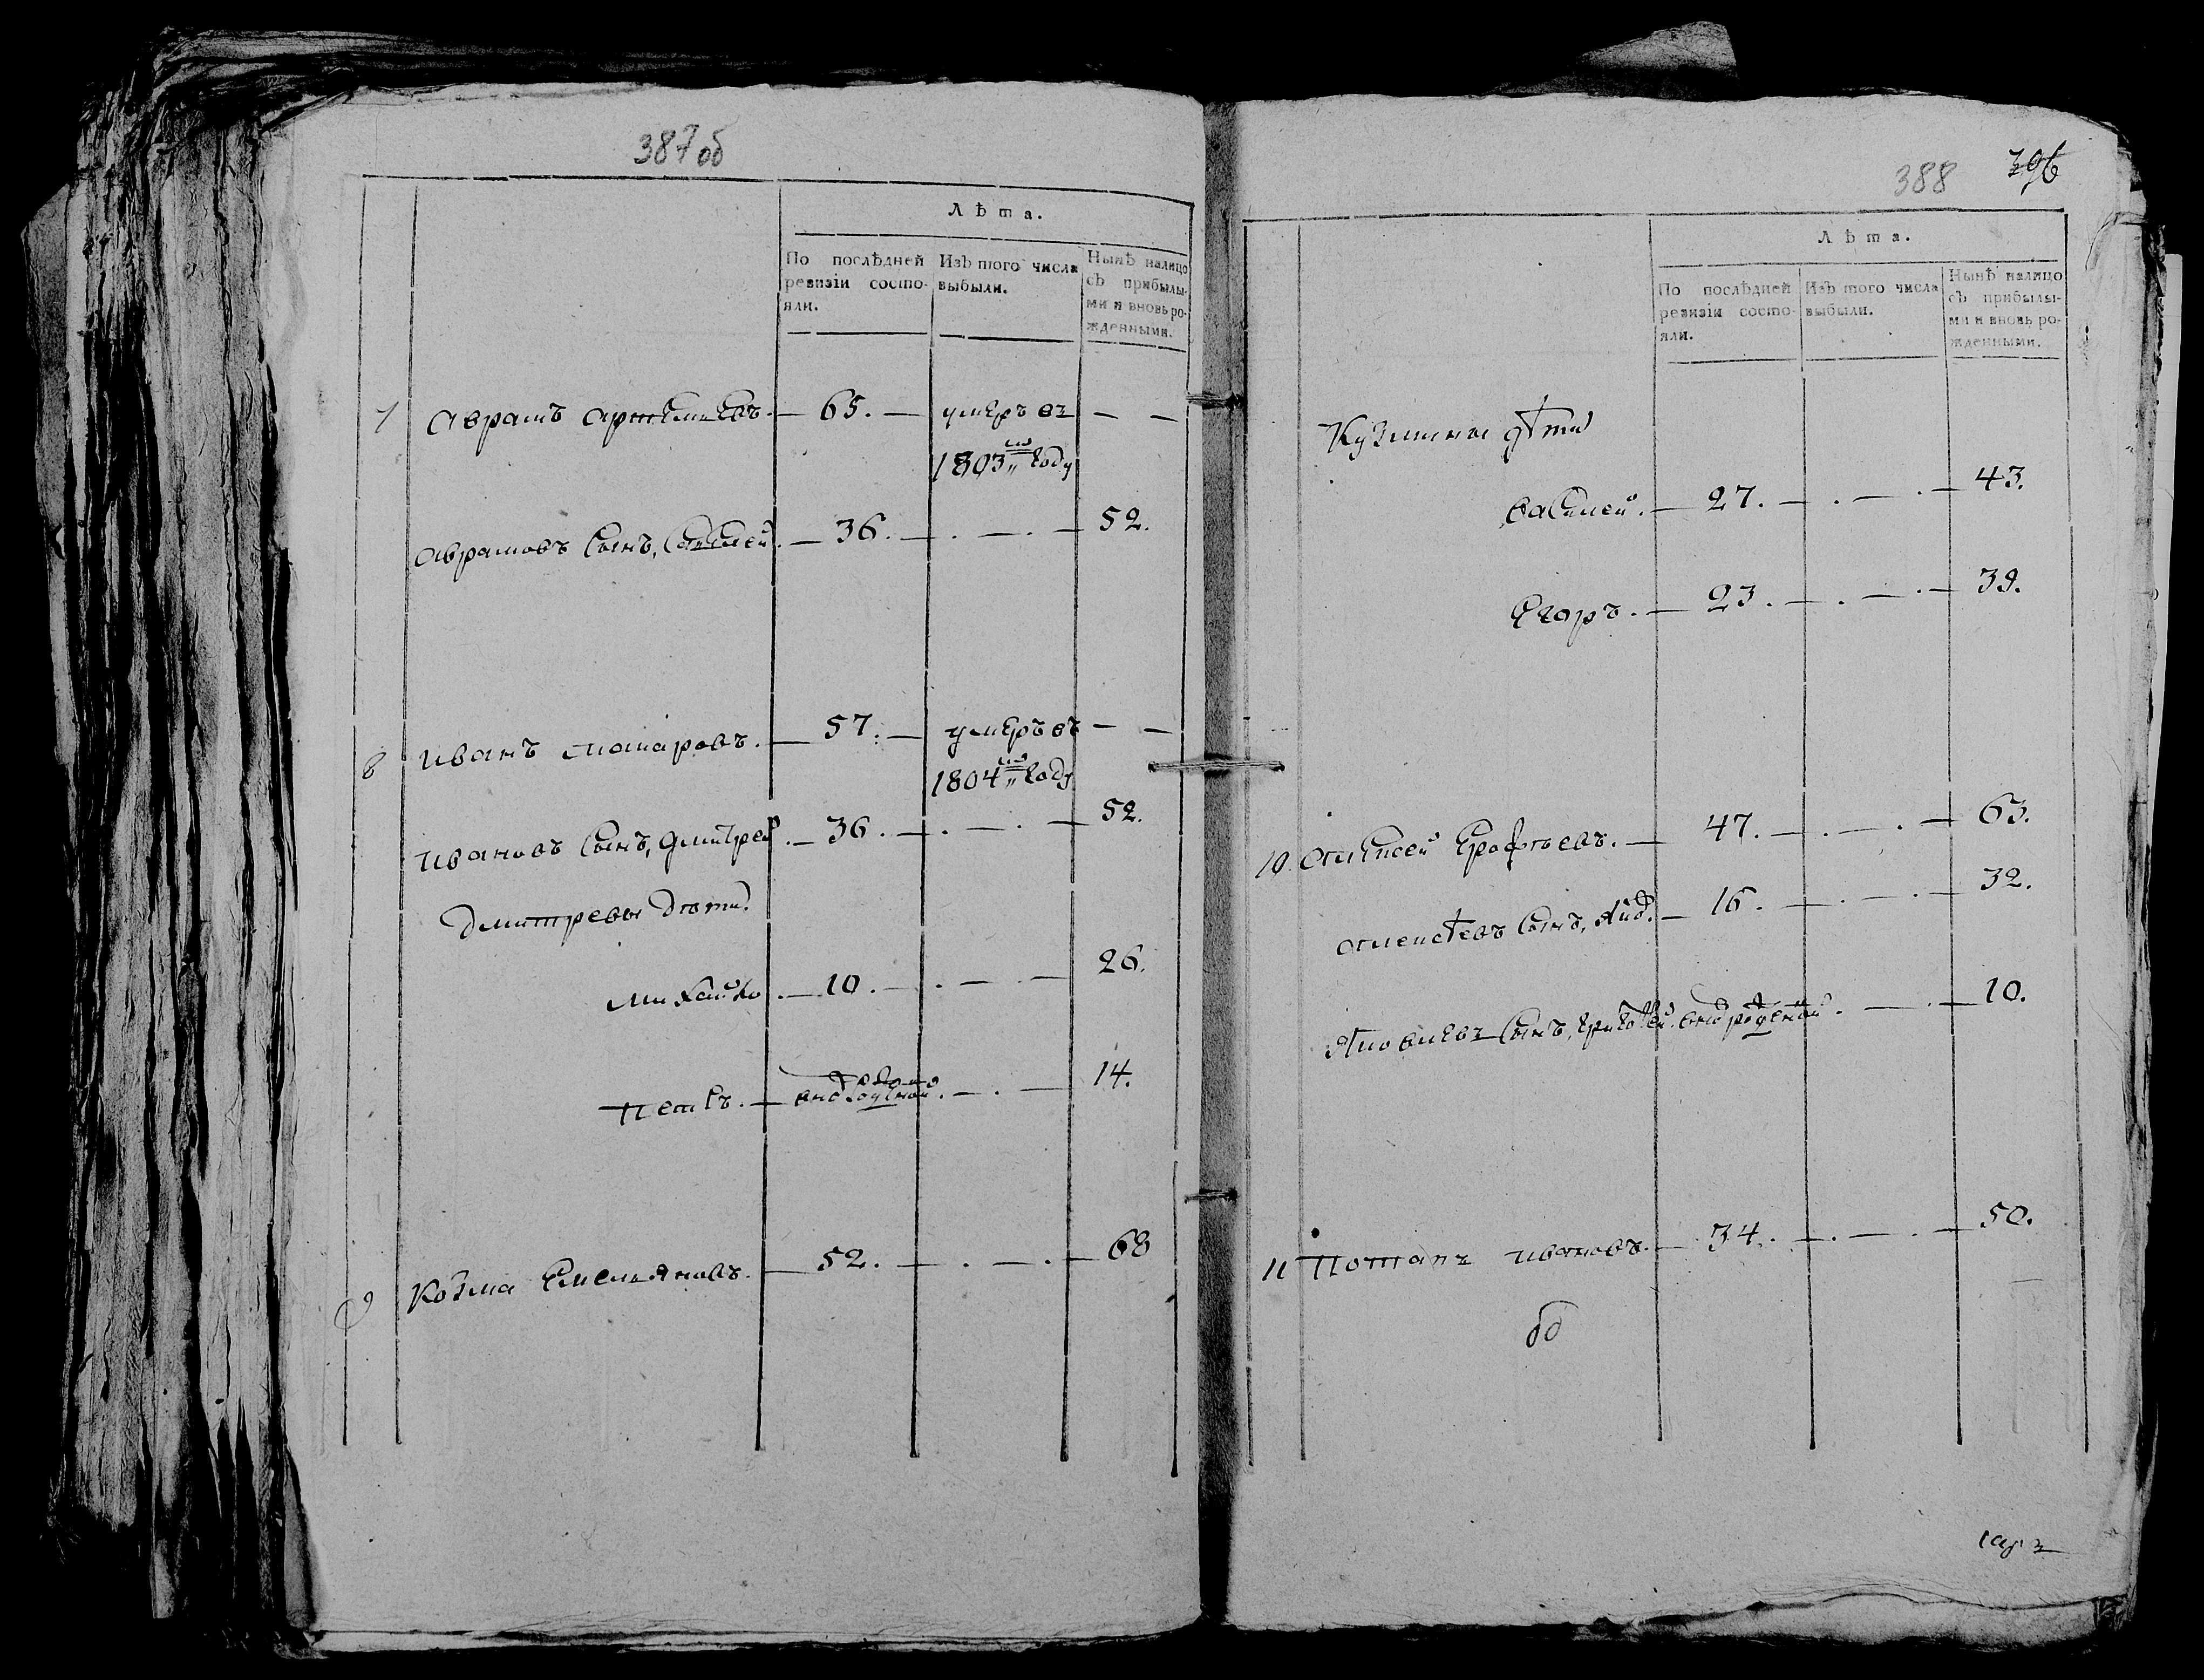 387 об
Лѣта.
По послѣдней ревизіи состояли.
Изъ того числа выбыли.
Нынѣ налицо съ прибылыми и вновь рожденными.
7 Аврамъ Артемьевъ. — 65. — умеръ въ — —
1803мъ году
Аврамовъ сынъ, — 36. — . — . — 52.
8 Иванъ — 57. — умеръ въ — —
1804мъ году
Ивановъ сынъ, Дмитрей. — 36. — . — . — 52.
Дмитревы дѣти
Михайло. — 10. — . — . — 26.
Петръ. — — . — 14.
9 Козма Емельяновъ. — 52. — . — . — 68
388 396
Лѣта.
По послѣдней ревизіи состояли.
Изъ того числа выбыли.
Нынѣ налицо съ прибылыми и вновь рожденными.
Кузмины дѣти
Василей. — 27. — . — . — 43.
Егоръ. — 23. — . — . — 39.
10. Алексей Ерофѣевъ. — 47. — . — . — 63.
Алексѣевъ сынъ, — 16. — . — . — 32.
сынъ, — . — 10.
11 Потапъ Ивановъ. — 34. — . — . — 50.